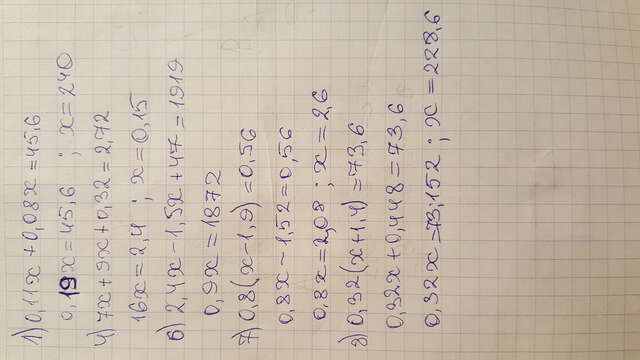 1) 0,11x + 0,08x = 45,6
0,19x = 45,6 ; x = 240
4) 7x + 9x + 0,32 = 2,72
16x = 2,4 ; x = 0,15
6) 2,4x - 1,5x + 47 = 1919
0,9x = 1872
7) 0,8(x - 1,9) = 0,56
0,8x - 1,52 = 0,56
0,8x = 2,08 ; x = 2,6
8) 0,32(x + 1,4) = 73,6
0,32x + 0,448 = 73,6
0,32x = 73,152 ; x = 228,6